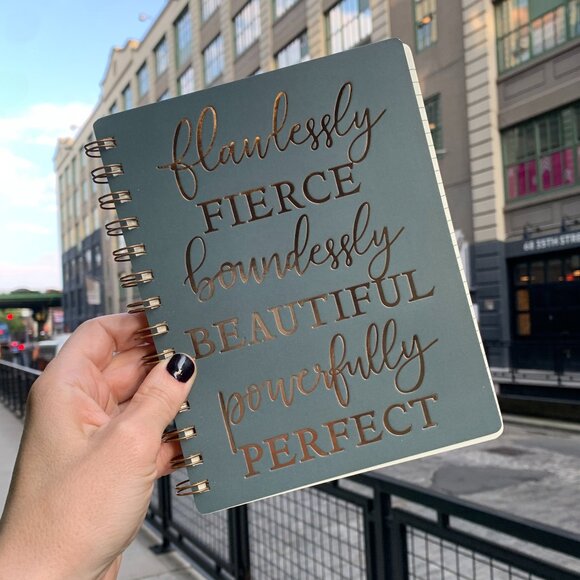 flawlessly
FIERCE
boundlessly
BEAUTIFUL
powerfully
PERFECT
68 35TH STREET